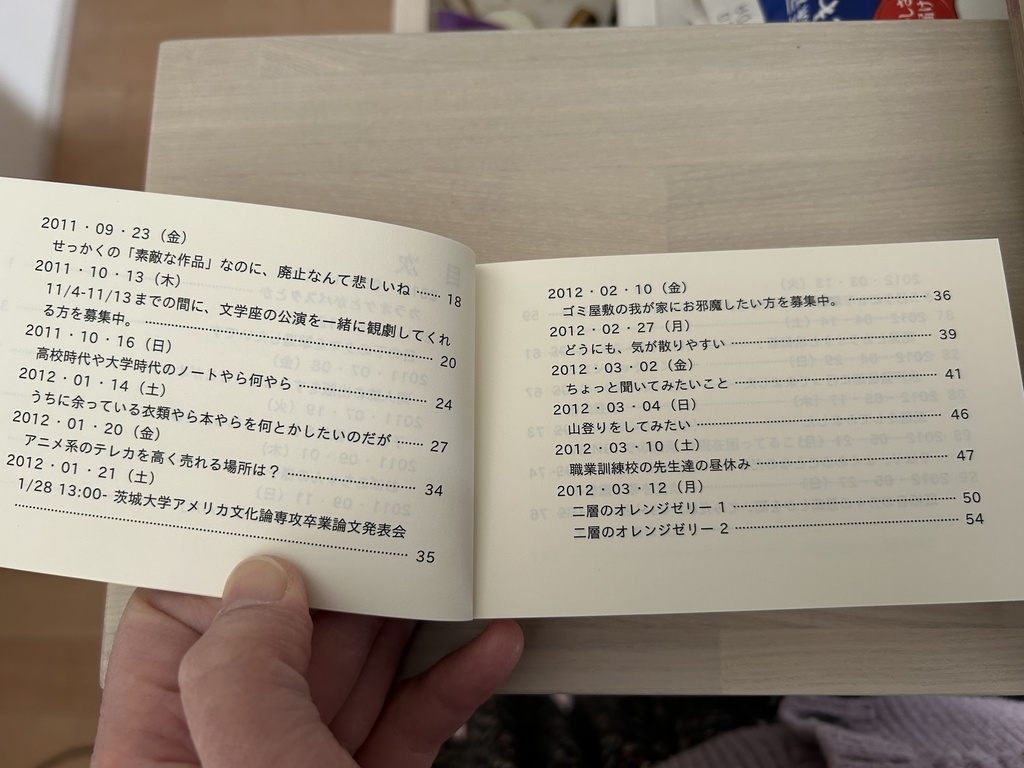 2011・09・23（金）
せっかくの「素敵な作品」なのに、廃止なんて悲しいね …… 18
2011・10・13（木）
11/4-11/13までの間に、文学座の公演を一緒に観劇してくれ
る方を募集中。 …… 20
2011・10・16（日）
高校時代や大学時代のノートやら何やら …… 24
2012・01・14（土）
うちに余っている衣類やら本やらを何とかしたいのだが …… 27
2012・01・20（金）
アニメ系のテレカを高く売れる場所は？ …… 34
2012・01・21（土）
1/28 13:00- 茨城大学アメリカ文化論専攻卒業論文発表会
…… 35
2012・02・10（金）
ゴミ屋敷の我が家にお邪魔したい方を募集中。 …… 36
2012・02・27（月）
どうにも、気が散りやすい …… 39
2012・03・02（金）
ちょっと聞いてみたいこと …… 41
2012・03・04（日）
山登りをしてみたい …… 46
2012・03・10（土）
職業訓練校の先生達の昼休み …… 47
2012・03・12（月）
二層のオレンジゼリー 1 …… 50
二層のオレンジゼリー 2 …… 54